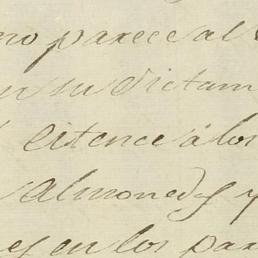 no parece al
en su dictam
citence á los
almoneds y
es en los par